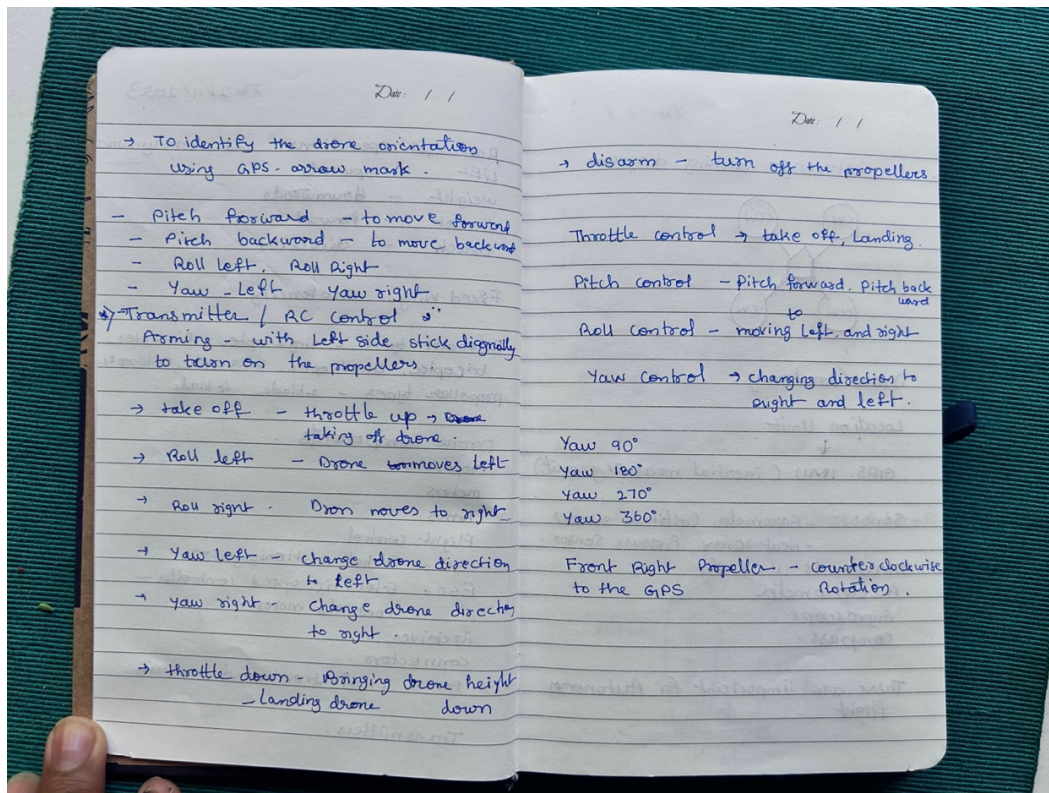 Date: / /
→ To identify the drone orientation
using GPS. arrow mark.
- Pitch forward - to move forward
- Pitch backward - to move backward
- Roll left, Roll Right
- Yaw - Left Yaw right
Transmitter / RC control
Arming - with Left side stick diagnally
to turn on the propellers.
→ take off - throttle up → Drone
taking off drone.
→ Roll left - Drone moves left
→ Roll right - Dron moves to right
→ Yaw left - change drone direction
to left
→ Yaw right - change drone direction
to right.
→ throttle down - Bringing drone height
- Landing drone down
Date: / /
→ disarm - turn off the propellers.
Throttle control → take off, Landing.
Pitch control - Pitch forward, Pitch back
ward
to
Roll control - moving left, and right
Yaw control → changing direction to
right and left.
Yaw 90°
Yaw 180°
Yaw 270°
Yaw 360°
Front Right Propeller - counter clockwise
to the GPS Rotation.